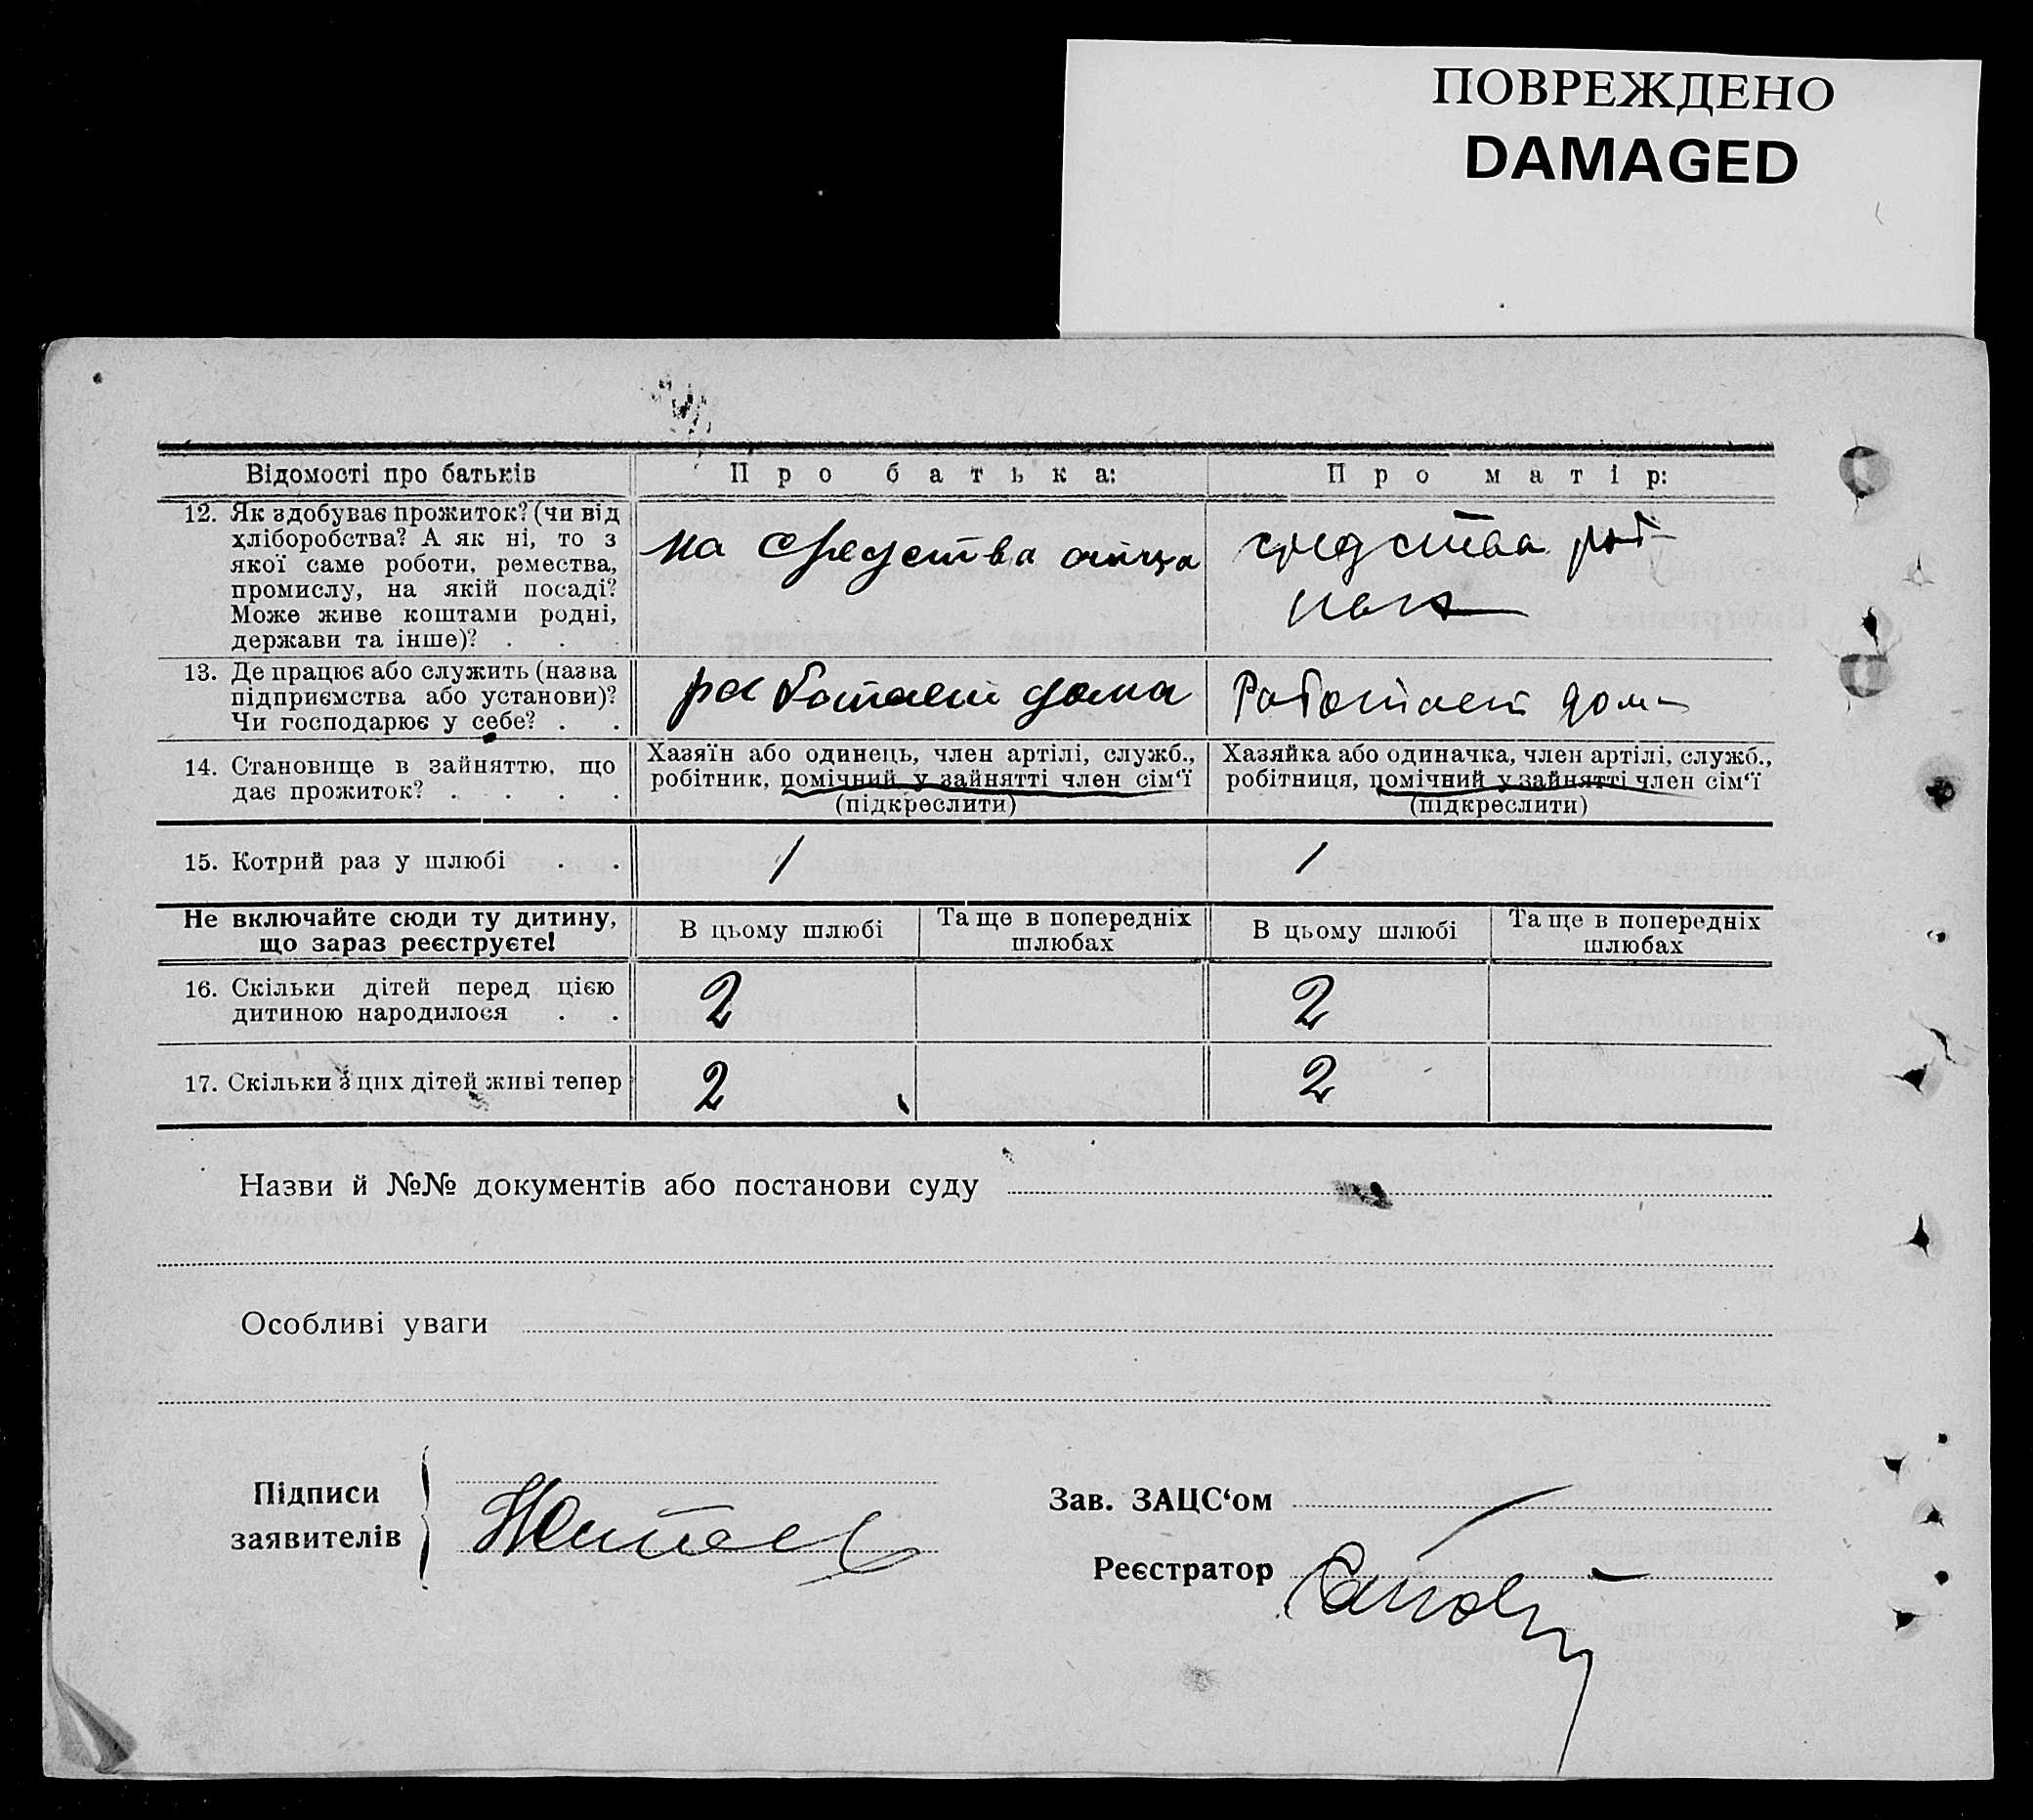 ПОВРЕЖДЕНО
DAMAGED
Відомості про батьків
Про батька:
Про матір:
12. Як здобуває прожиток? (чи від
хліборобства? А як ні, то з
якої саме роботи, ремества,
промислу, на якій посаді?
Може живе коштами родні,
держави та інше)? . . .
на средства отца
средства
13. Де працює або служить (назва
підприємства або установи)?
Чи господарює у себе? . .
работает дома
Работает дома
14. Становище в зайняттю, що
дає прожиток? . . . .
Хазяїн або одинець, член артілі, служб.,
робітник, помічний у зайнятті член сім‘ї
(підкреслити)
Хазяйка або одиначка, член артілі, служб.,
робітниця, помічний у зайнятті член сім‘ї
(підкреслити)
15. Котрий раз у шлюбі . .
1
1
Не включайте сюди ту дитину,
що зараз реєструєте!
В цьому шлюбі
Та ще в попередніх
шлюбах
В цьому шлюбі
Та ще в попередніх
шлюбах
16. Скільки дітей перед цією
дитиною народилося . .
2
2
17. Скільки з цих дітей живі тепер
2
2
Назви й №№ документів або постанови суду
Особливі уваги
Підписи
заявителів
Зав. ЗАЦС‘ом
Реєстратор